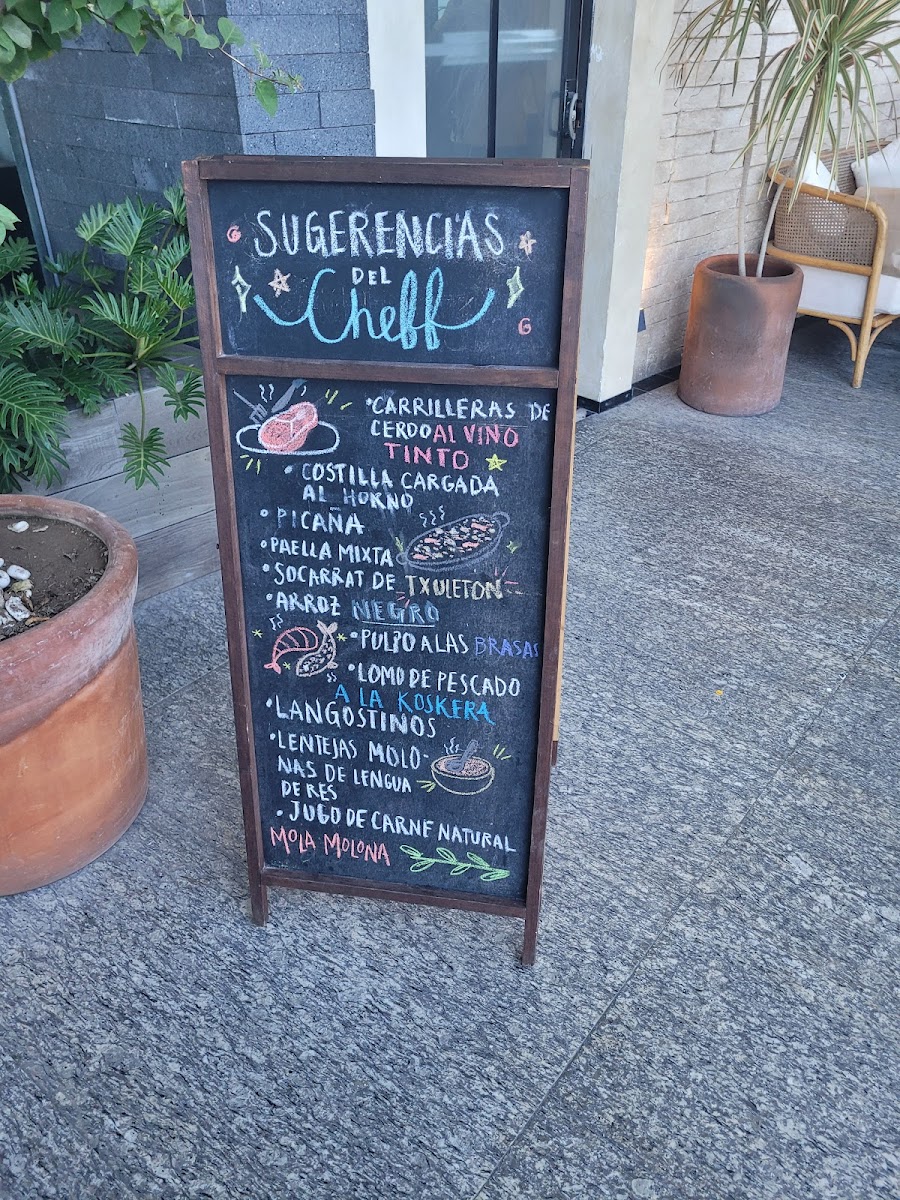 SUGERENCIAS
DEL
Cheff
•CARRILLERAS DE
CERDO AL VINO
TINTO
•COSTILLA CARGADA
AL HORNO
•PICAÑA
•PAELLA MIXTA
•SOCARRAT DE TXULETON
•ARROZ NEGRO
•PULPO A LAS BRASAS
•LOMO DE PESCADO
A LA KOSKERA
•LANGOSTINOS
•LENTEJAS MOLO-
NAS DE LENGUA
DE RES
•JUGO DE CARNE NATURAL
MOLA MOLONA